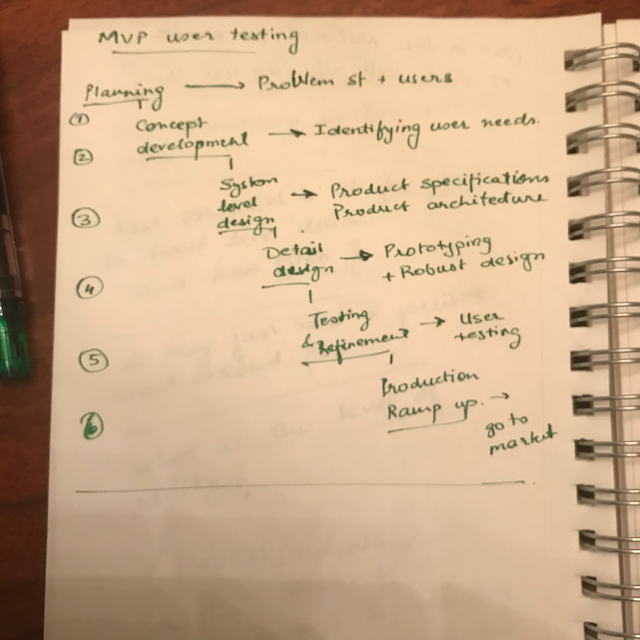 MVP user testing
Planning → Problem st + users
①
Concept
development → Identifying user needs.
②
System
level → Product specifications
design Product architecture
③
Detail → Prototyping
design + Robust design
④
Testing → User
& Refinement testing
⑤
Production
Ramp up. →
⑥
go to
market